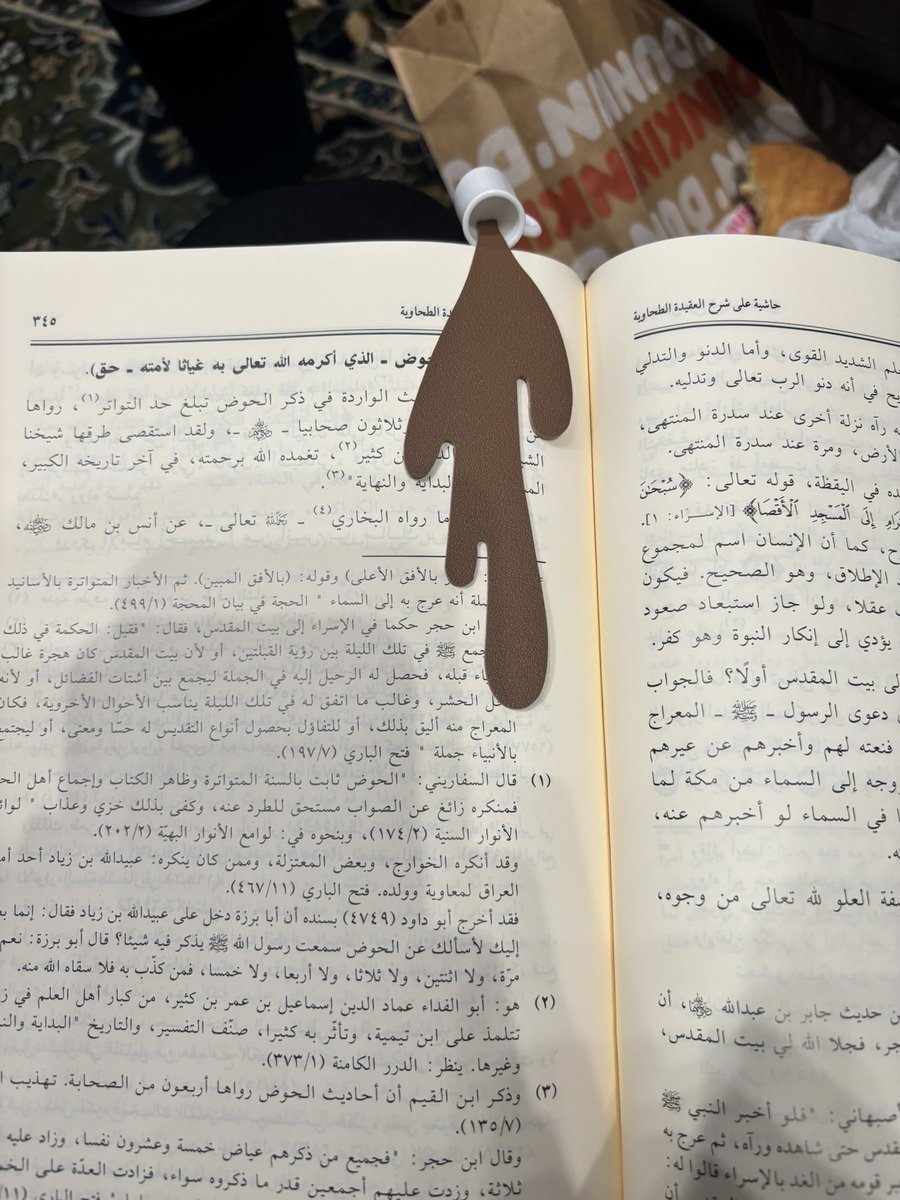 DUNKIN'
DUNKIN'
حاشية على شرح العقيدة الطحاوية
لم الشديد القوى، وأما الدنو والتدلي
في أنه دنو الرب تعالى وتدليه.
رآه نزلة أخرى عند سدرة المنتهى،
الأرض، ومرة عند سدرة المنتهى.
في اليقظة، قوله تعالى: ﴿سُبْحَٰنَ
إِلَى ٱلْمَسْجِدِ ٱلْأَقْصَا﴾ [الإسراء: ١].
كما أن الإنسان اسم لمجموع
الإطلاق، وهو الصحيح. فيكون
عقلا، ولو جاز استبعاد صعود
يؤدي إلى إنكار النبوة وهو كفر.
بيت المقدس أولًا؟ فالجواب
دعوى الرسول ـ ﷺ ـ المعراج
فنعته لهم وأخبرهم عن عيرهم
وجه إلى السماء من مكة لما
في السماء لو أخبرهم عنه،
فة العلو لله تعالى من وجوه،
حديث جابر بن عبدالله، أن
فجلا الله لي بيت المقدس،
صبهاني: "فلو أخبر النبي ﷺ
قدس حتى شاهده ورآه، ثم عرج به
قومه من الغد بالإسراء قالوا له:
الطحاوية
٣٤٥
ـ الذي أكرمه الله تعالى به غياثا لأمته ـ حق).
الواردة في ذكر الحوض تبلغ حد التواتر(١)، رواها
ثلاثون صحابيا ـ ـ، ولقد استقصى طرقها شيخنا
كثير(٢)، تغمده الله برحمته، في آخر تاريخه الكبير،
البداية والنهاية"(٣).
ما رواه البخاري(٤) ـ تعالى ـ، عن أنس بن مالك،
بالأفق الأعلى) وقوله: (بالأفق المبين). ثم الأخبار المتواترة بالأسانيد
أنه عرج به إلى السماء " الحجة في بيان المحجة (٤٩٩/١).
ابن حجر حكما في الإسراء إلى بيت المقدس، فقال: "فقيل: الحكمة في ذلك
ﷺ في تلك الليلة بين رؤية القبلتين، أو لأن بيت المقدس كان هجرة غالب
قبله، فحصل له الرحيل إليه في الجملة ليجمع بين أشتات الفضائل، أو لأنه
الحشر، وغالب ما اتفق له في تلك الليلة يناسب الأحوال الأخروية، فكان
المعراج منه أليق بذلك، أو للتفاؤل بحصول أنواع التقديس له حسًا ومعنى، أو ليجتمع
بالأنبياء جملة " فتح الباري (١٩٧/٧).
(١) قال السفاريني: "الحوض ثابت بالسنة المتواترة وظاهر الكتاب وإجماع أهل الحـ
فمنكره زائغ عن الصواب مستحق للطرد عنه، وكفى بذلك خزي وعذاب " لوائـ
الأنوار السنية (١٧٤/٢)، وبنحوه في: لوامع الأنوار البهيّة (٢٠٢/٢).
وقد أنكره الخوارج، وبعض المعتزلة، وممن كان ينكره: عبيدالله بن زياد أحد أمـ
العراق لمعاوية وولده. فتح الباري (٤٦٧/١١).
فقد أخرج أبو داود (٤٧٤٩) بسنده أن أبا برزة دخل على عبيدالله بن زياد فقال: إنما بعـ
إليك لأسألك عن الحوض سمعت رسول الله ﷺ يذكر فيه شيئا؟ قال أبو برزة: نعم
مرّة، ولا اثنتين، ولا ثلاثا، ولا أربعا، ولا خمسا، فمن كذّب به فلا سقاه الله منه.
(٢) هو: أبو الفداء عماد الدين إسماعيل بن عمر بن كثير، من كبار أهل العلم في ز
تتلمذ على ابن تيمية، وتأثّر به كثيرا، صنّف التفسير، والتاريخ "البداية والنـ
وغيرها. ينظر: الدرر الكامنة (٣٧٣/١).
(٣) وذكر ابن القيم أن أحاديث الحوض رواها أربعون من الصحابة. تهذيب
(١٣٥/٧).
وقال ابن حجر: "فجميع من ذكرهم عياض خمسة وعشرون نفسا، وزاد عليه
ثلاثة، وزدت عليهم أجمعين قدر ما ذكروه سواء، فزادت العدّة على الخمـ